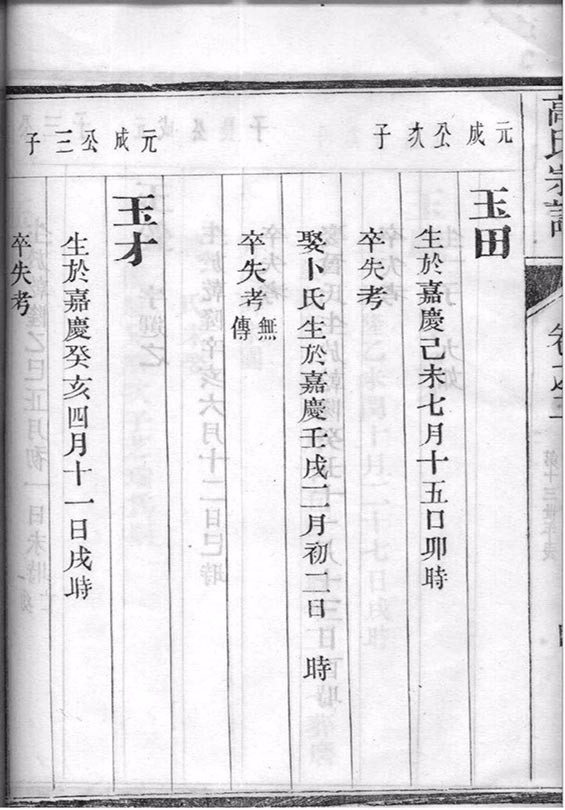 高氏宗譜
元成公次子
玉田
生於嘉慶己未七月十五日卯時
卒失考
娶卜氏生於嘉慶壬戌二月初二日　時
卒失考無傳
元成公三子
玉才
生於嘉慶癸亥四月十一日戌時
卒失考